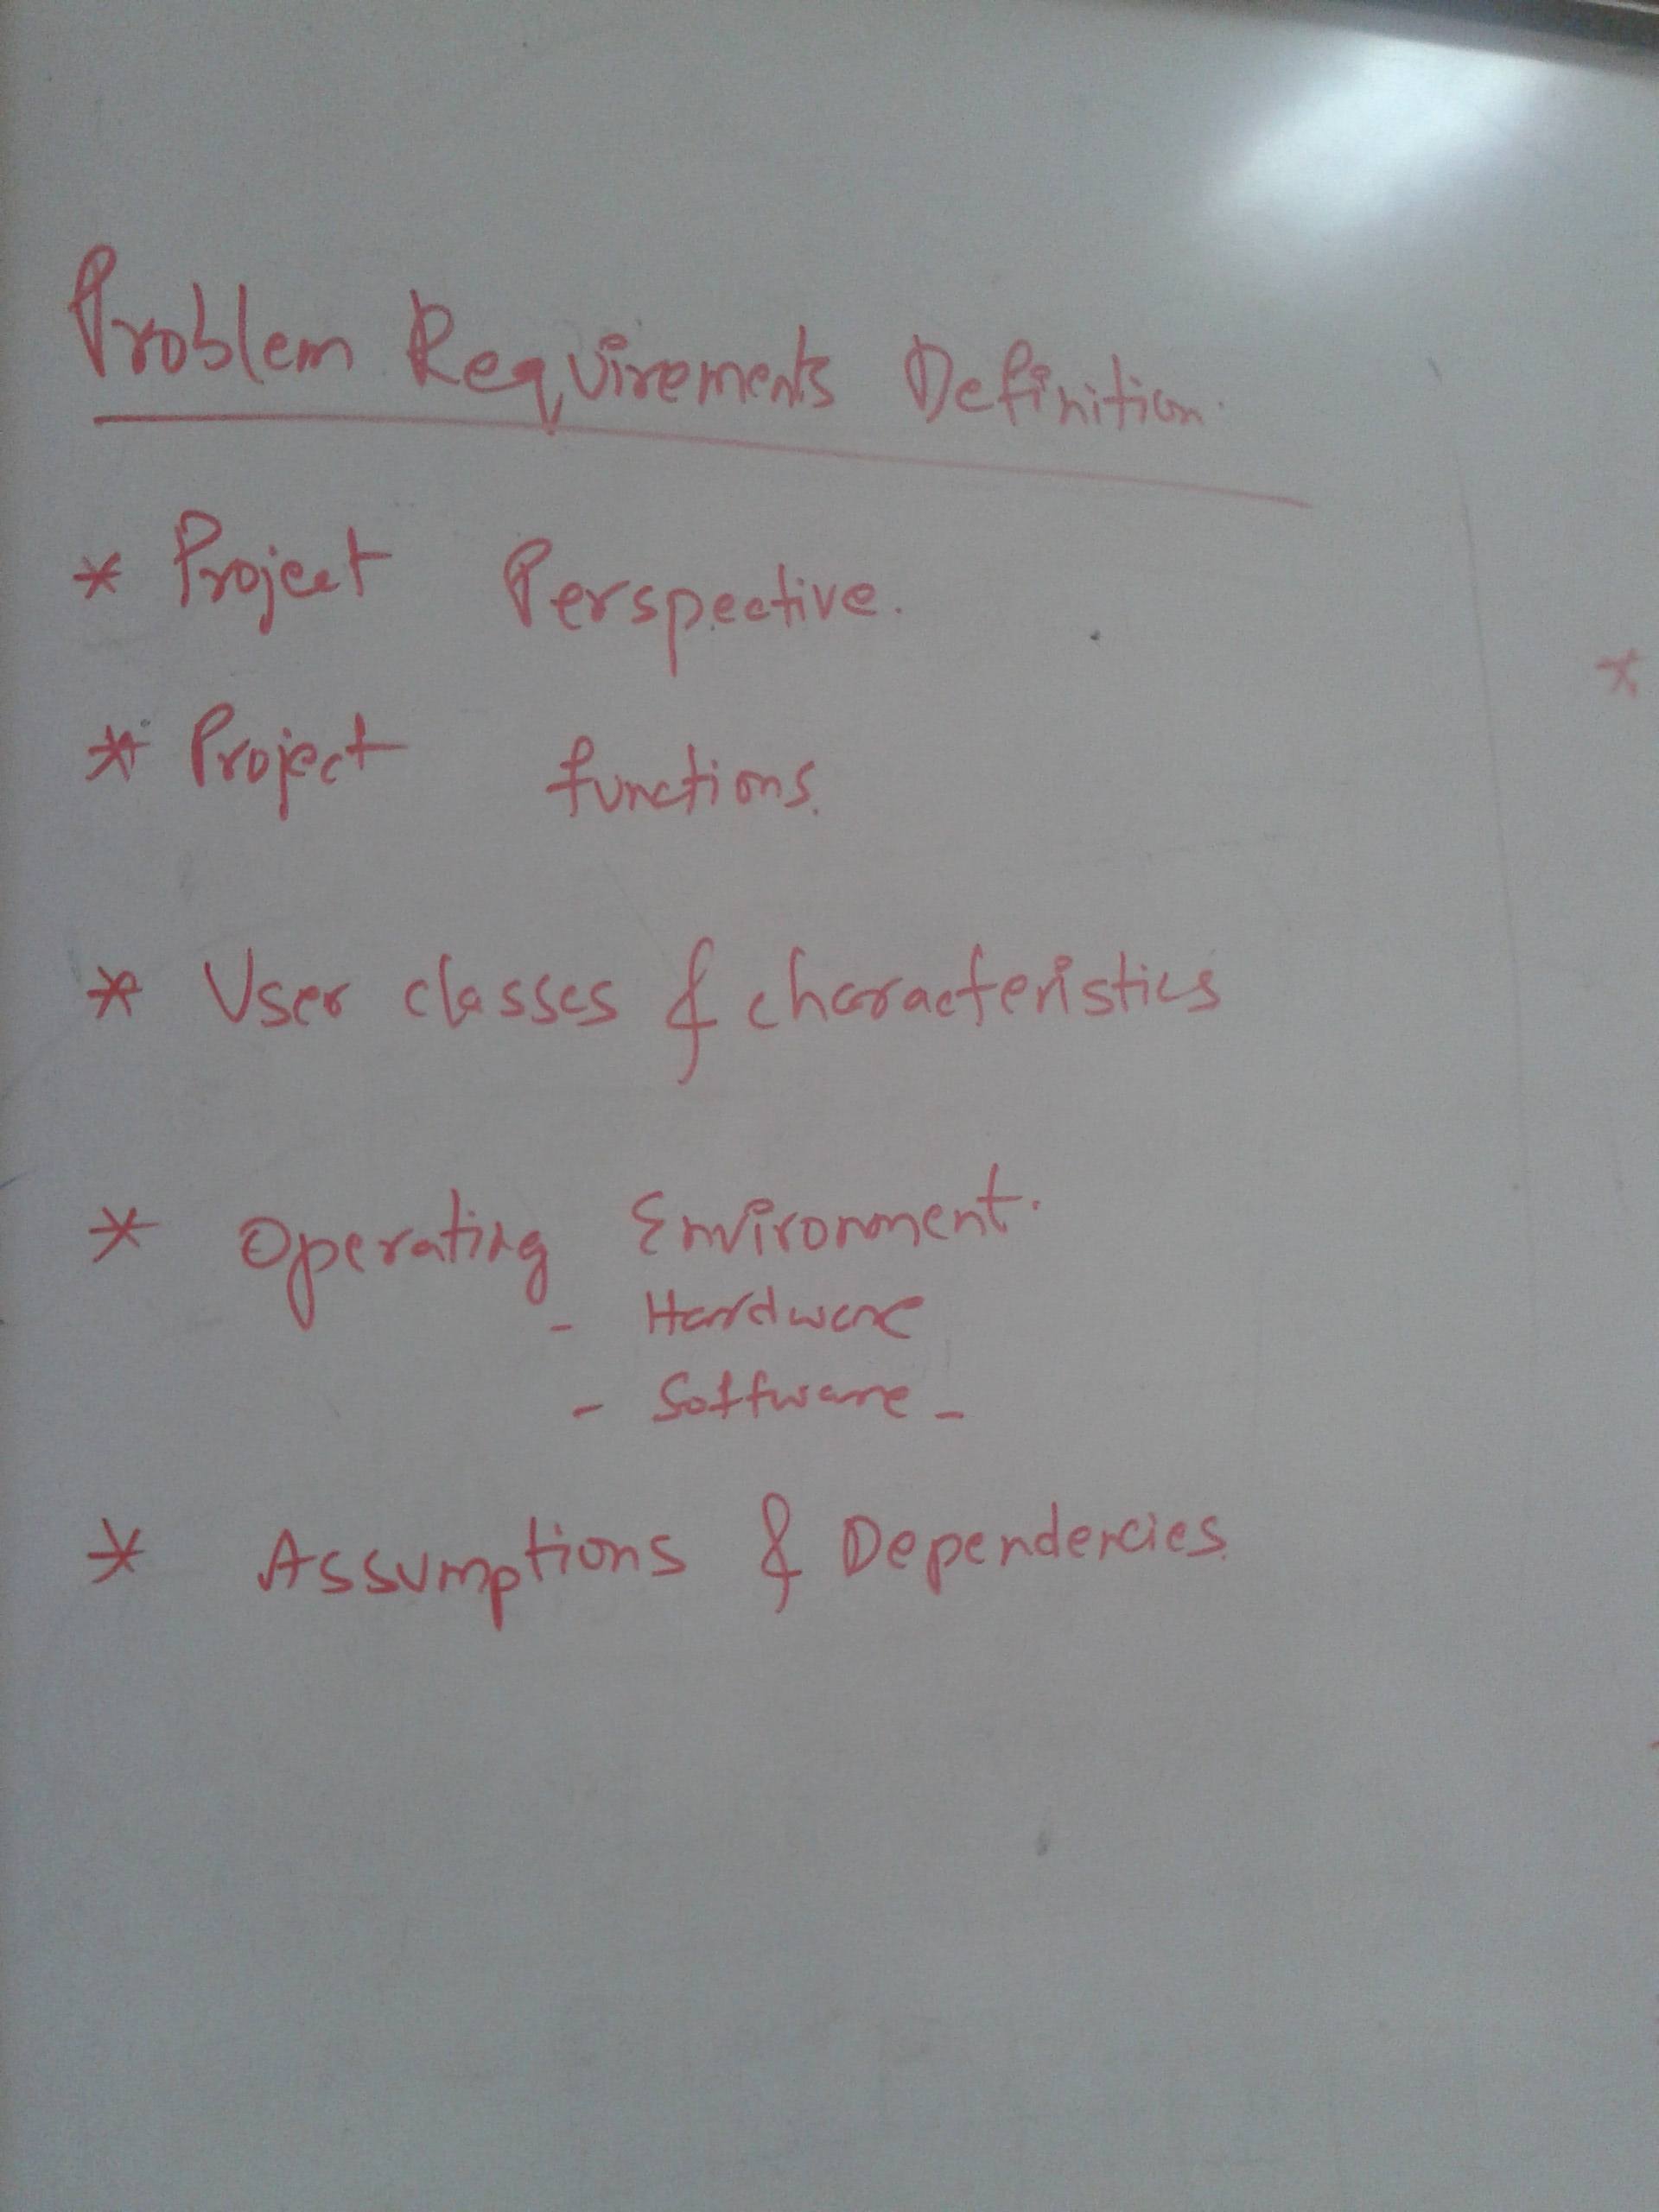 Problem Requirements Definition.
* Project Perspective.
* Project functions.
* User classes & characteristics
* Operating Environment.
- Hardware
- Software -
* Assumptions & Dependencies.
*